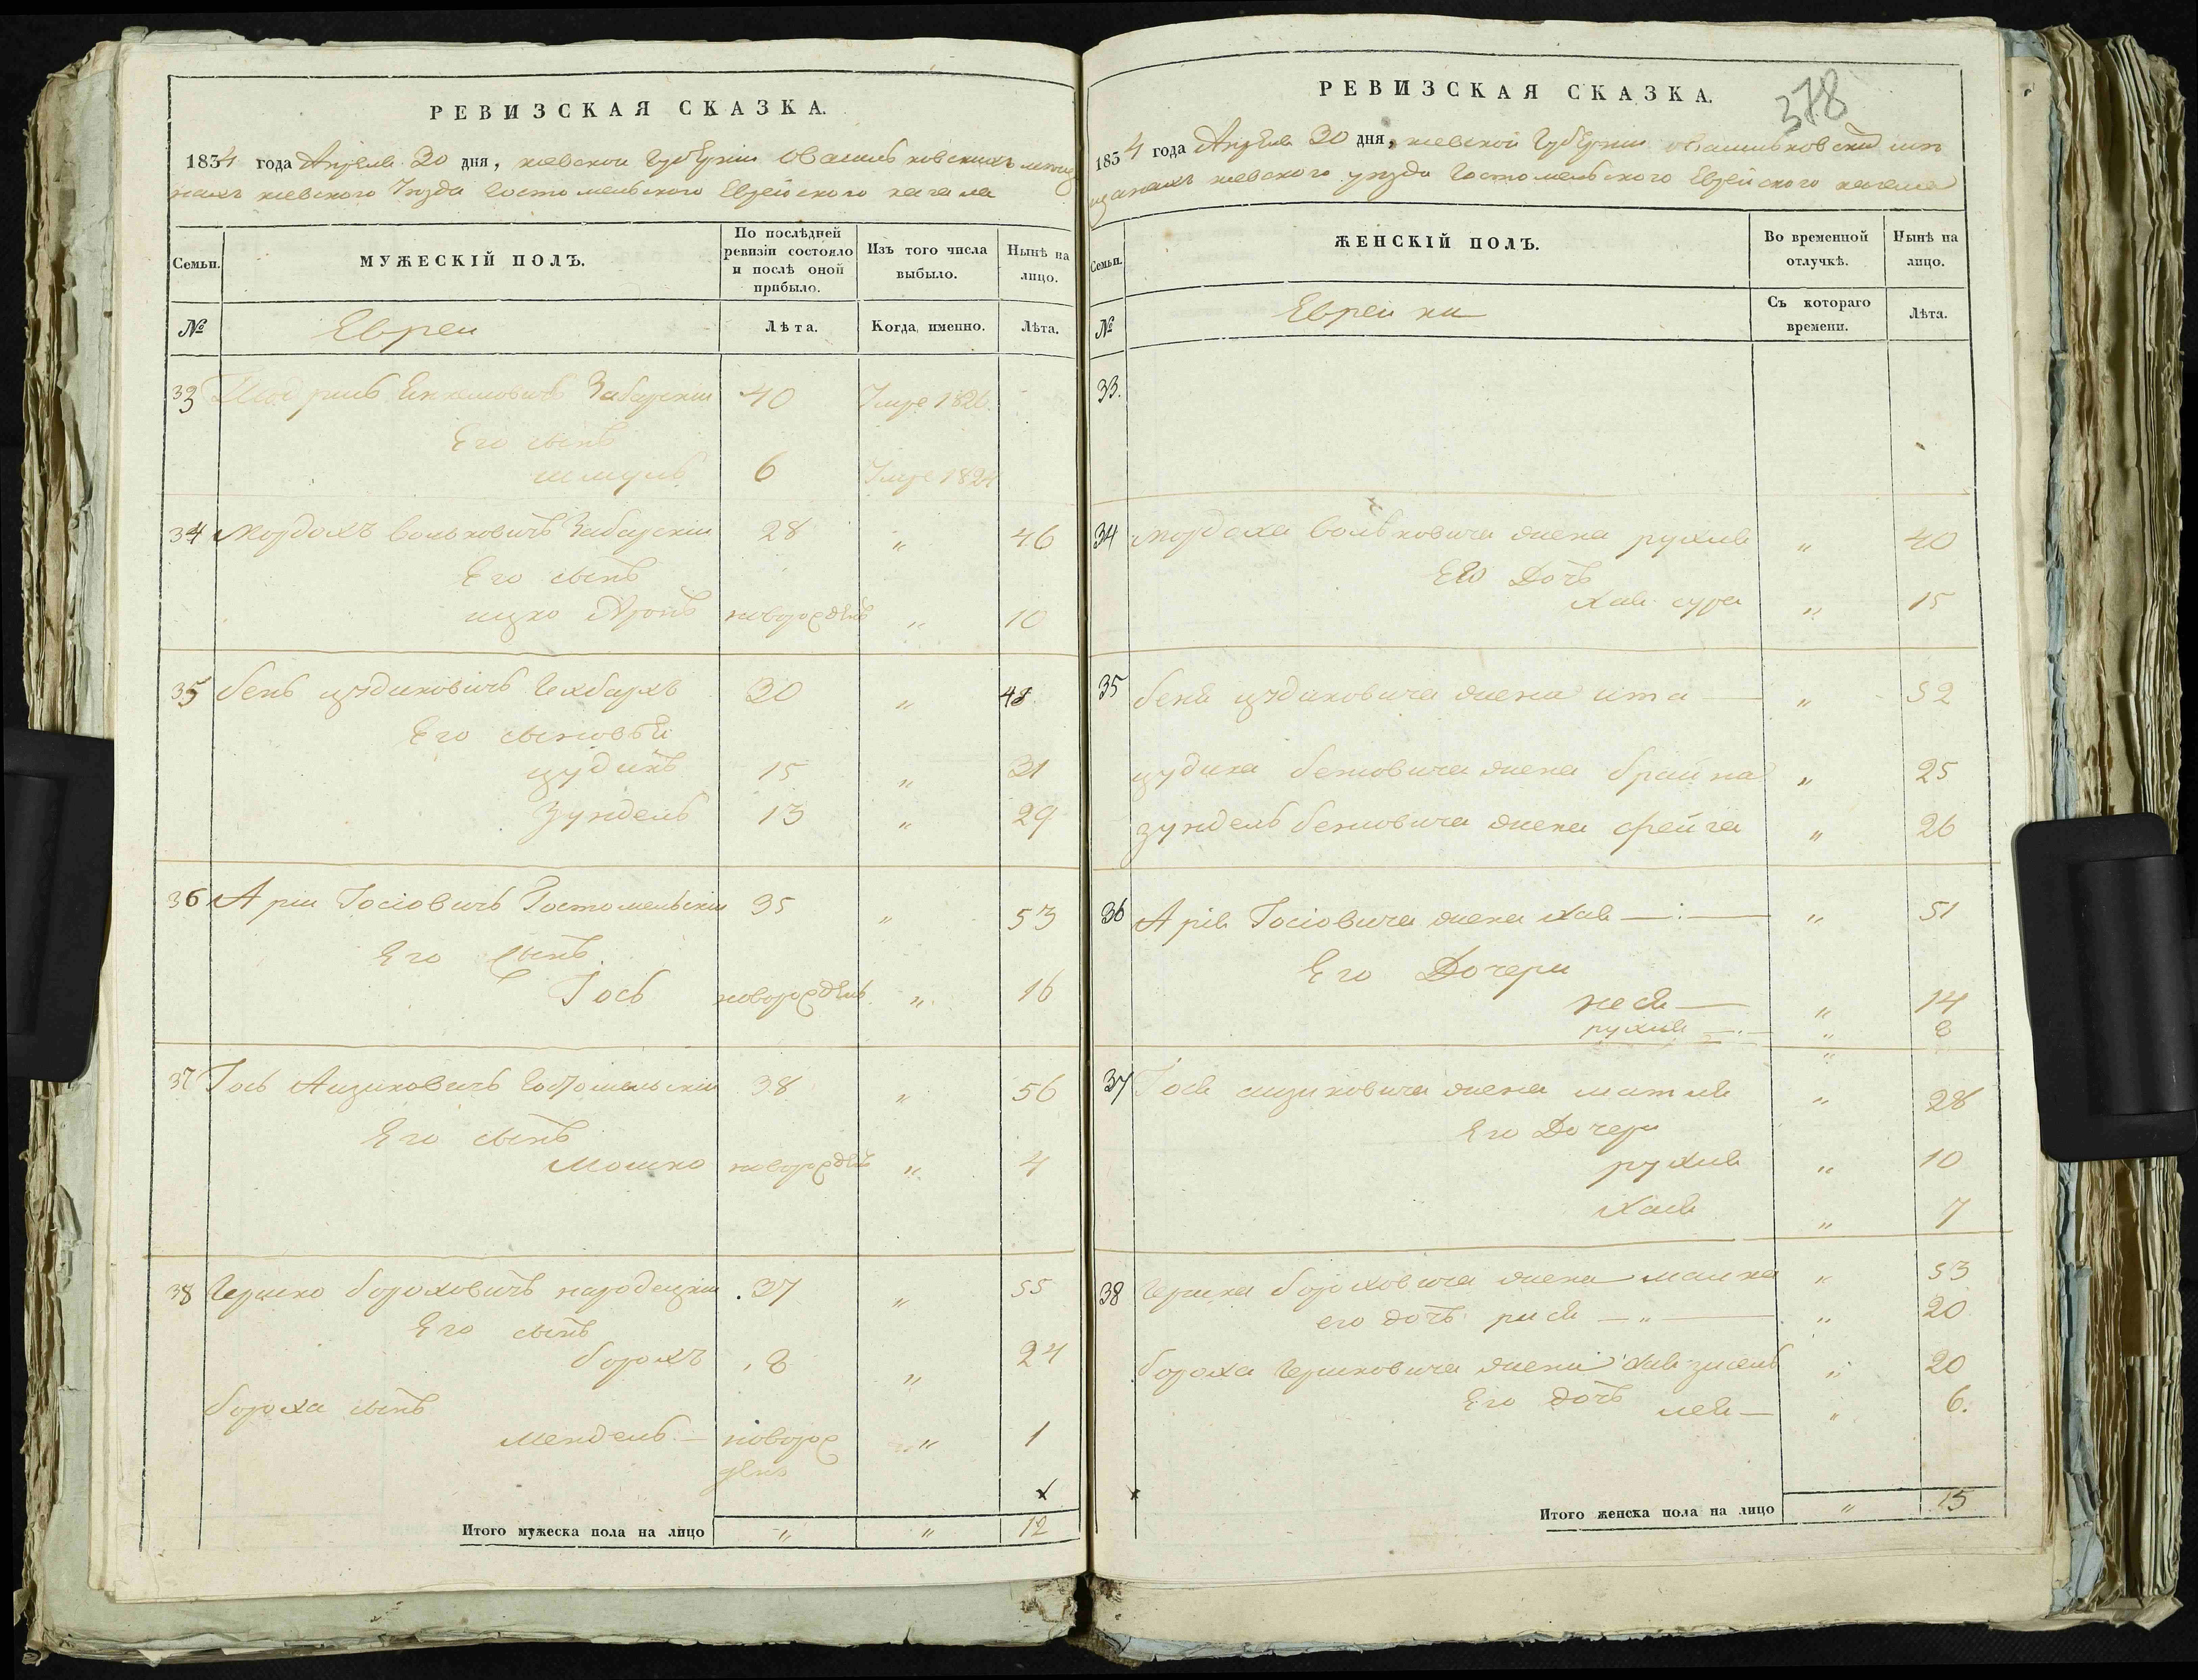 РЕВИЗСКАЯ СКАЗКА.
1834 года Апреля 20 дня, киевской Губерніи
киевского Уезда Гостомельского Еврейского кагала
Семьи.
МУЖЕСКІЙ ПОЛЪ.
По послѣдней ревизіи состояло и послѣ оной прибыло.
Изъ того числа выбыло.
Нынѣ на лицо.
№
Евреи
Лѣта.
Когда, именно.
Лѣта.
33 Забарскій 40 Умре 1826
Его сынъ
шмуль 6 Умре 1824
34 Мордохъ Вольковичъ Забарскій 28 " 46
Его сынъ
ицко Аронъ новорожденъ " 10
35 бень цудиковичъ 30 " 48
Его сыновьи
цудикъ 15 " 31
Зундель 13 " 29
36 Аріи Іосіовичъ Гостомельскій 35 " 53
Его сынъ
Іось новорожденъ " 16
37 Іось Аизиковичъ Гостомельскій 38 " 56
Его сынъ
Мошко новорожденъ " 4
38 Гершко бороховичъ народецкіи 37 " 55
Его сынъ
борохъ 8 " 24
бороха сынъ
Мендель — новорож " 1
денъ
х
Итого мужеска пола на лицо " " 12
РЕВИЗСКАЯ СКАЗКА.
378
1834 года Апреля 20 дня, киевской Губерніи
киевского уезда Гостомельского Еврейского кагала
Семьи.
ЖЕНСКІЙ ПОЛЪ.
Во временной отлучкѣ.
Нынѣ на лицо.
№
Еврейки
Съ котораго времени.
Лѣта.
33.
34 мордоха вольковича жена рухля " 40
Его Дочь
хая сура " 15
35 беня цудиковича жена ита — " 52
цудика бениовича жена брайна " 25
зундель бениовича жена фейга " 26
36 Арія Іосіовича жена хая — " 51
Его Дочери
неся — " 14
рухля — " 8
"
37 Іося аизиковича жена матля " 28
Его Дочери
рухля " 10
Хая " 7
38 Гершка бороховича жена малка " 53
его дочь рися — " — " 20
бороха Гершковича жена хая зисель " 20
Его дочь лея — " 6.
х
Итого женска пола на лицо " 15